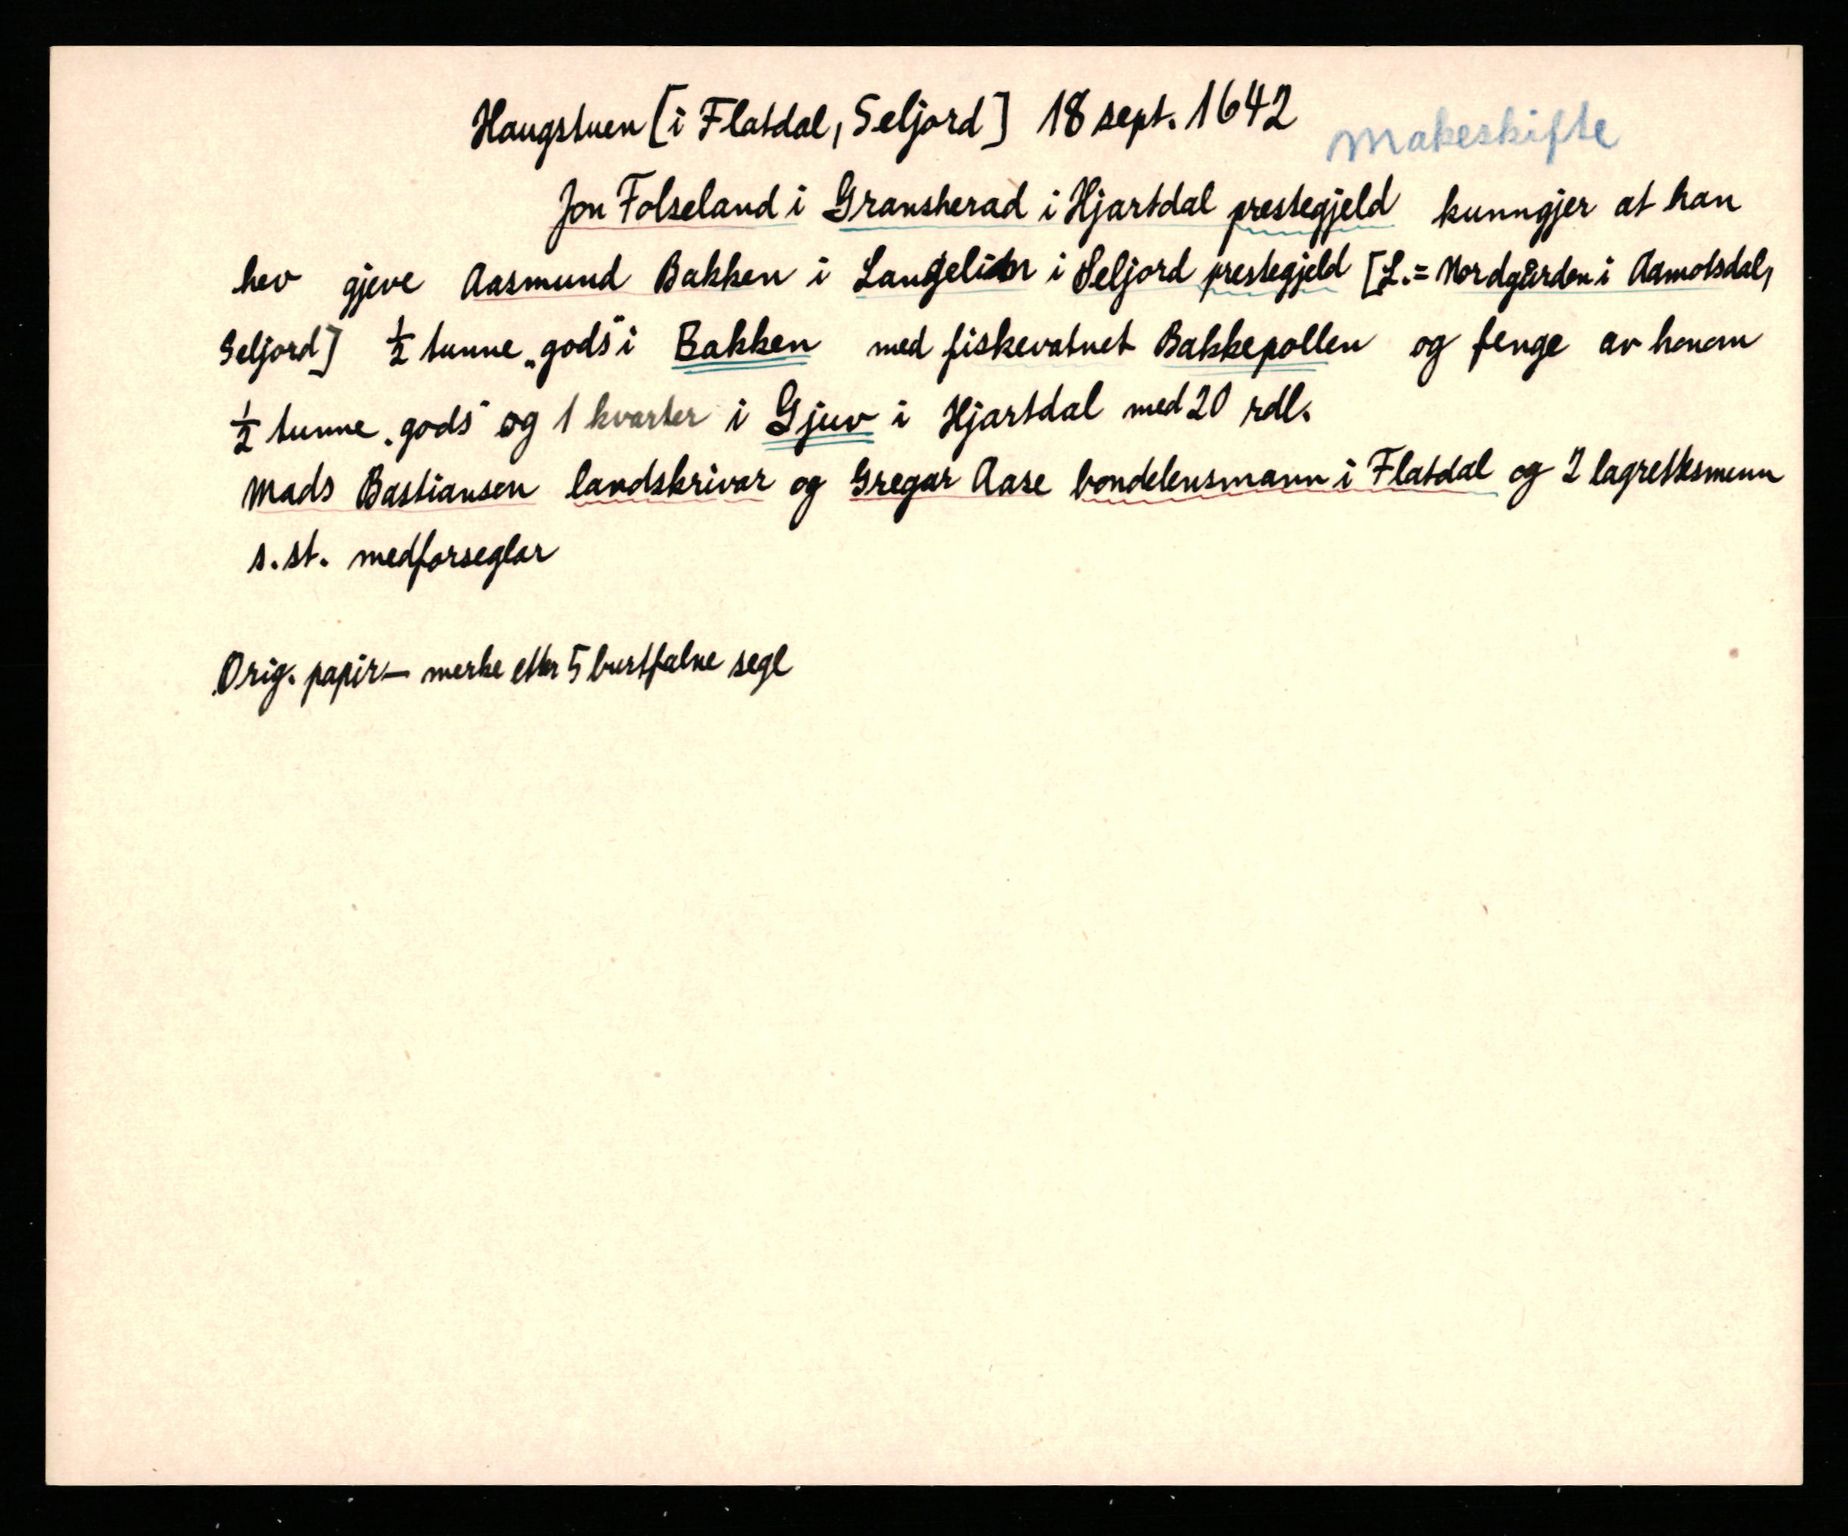 Haugstuen [i Flatdal, Seljord] 18 sept. 1642 Makeskifte
Jon Folseland i Gransherad i Hjartdal prestegjeld kunngjer at han
hev gjeve Aasmund Bakken i Langelidn i Seljord prestegjeld [L.= Nordgården i Aamotsdal,
Seljord] ½ tunne „gods" i Bakken med fiskevatnet Bakkepollen og fenge av honom
½ tunne „gods" og 1 kvarter i Gjuv i Hjartdal med 20 rdl.
Mads Bastiansen landskrivar og Gregar Aase bondelensmann i Flatdal og 2 lagrettesmenn
s. st. medforseglar
Orig. papir – merke etter 5 burtfalne segl